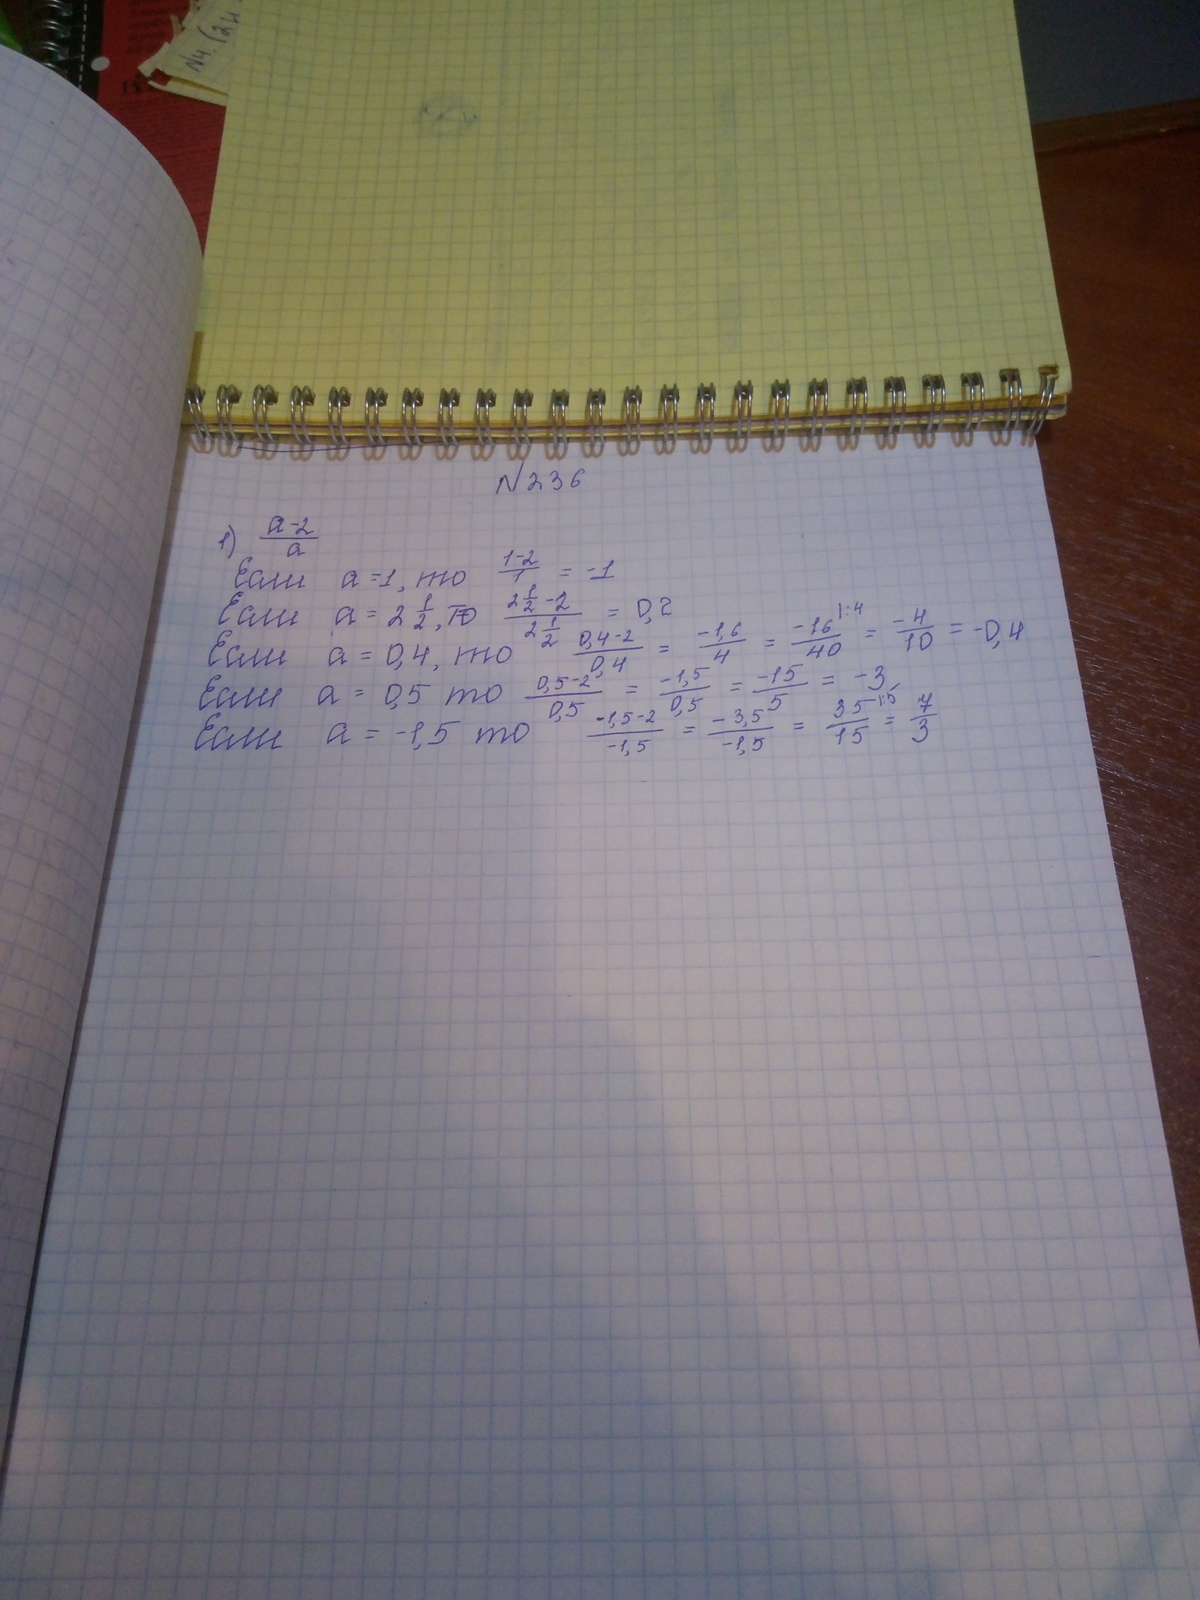 N4. (2и
N236
1) \frac{a-2}{a}
Если a=1, то \frac{1-2}{1} = -1
Если a = 2\frac{1}{2}, то \frac{2\frac{1}{2}-2}{2\frac{1}{2}} = 0,2
Если a = 0,4, то \frac{0,4-2}{0,4} = \frac{-1,6}{4} = \frac{-16}{40}^{|:4} = \frac{-4}{10} = -0,4
Если a = 0,5 то \frac{0,5-2}{0,5} = \frac{-1,5}{0,5} = \frac{-15}{5} = -3
Если a = -1,5 то \frac{-1,5-2}{-1,5} = \frac{-3,5}{-1,5} = \frac{35}{15}^{|:5} = \frac{7}{3}